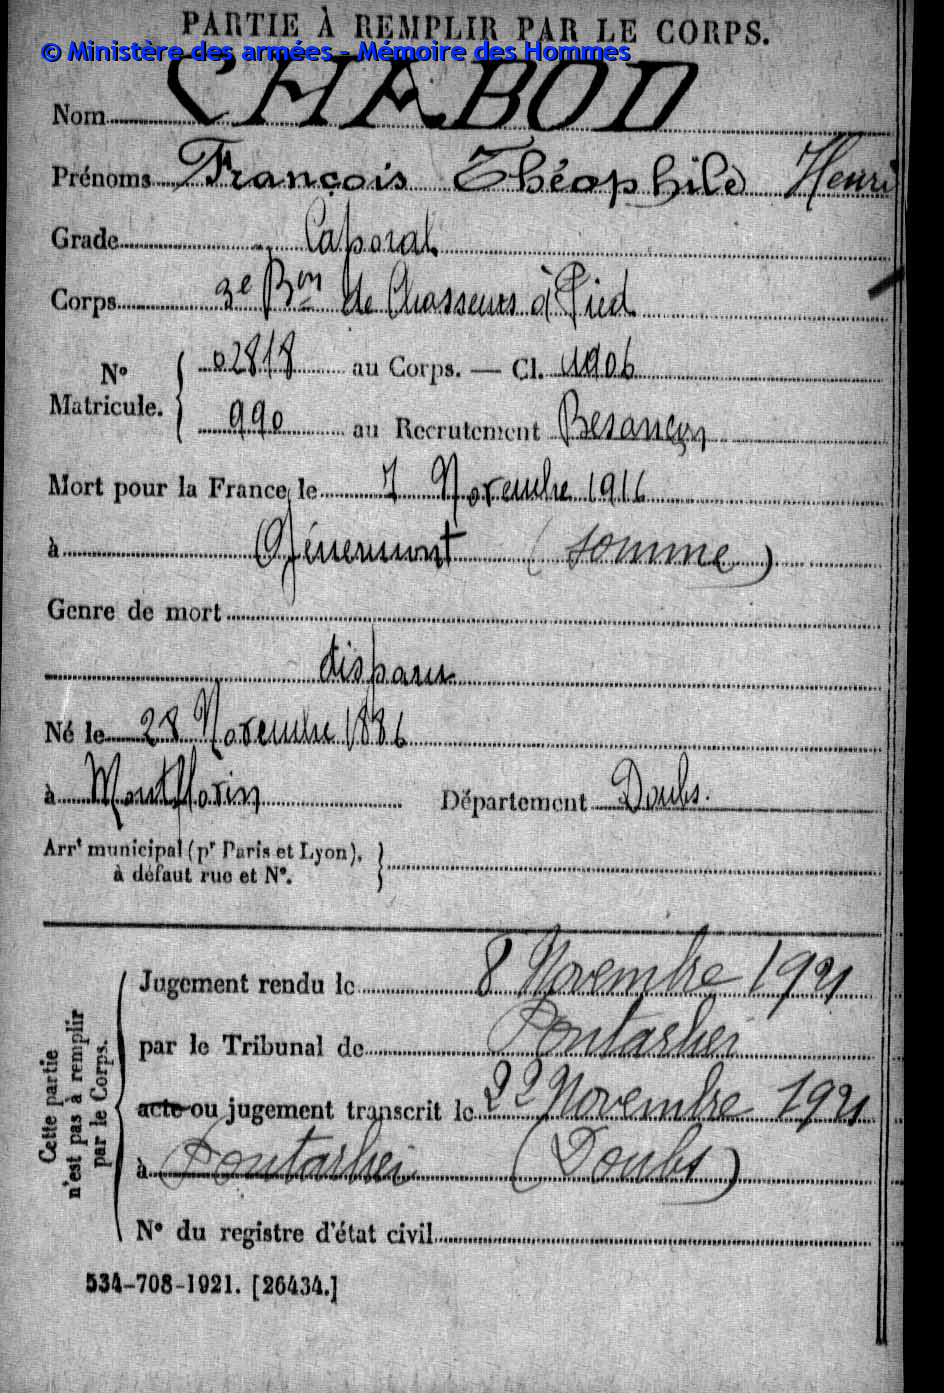 PARTIE À REMPLIR PAR LE CORPS.
© Ministère des armées - Mémoire des Hommes
Nom CHABOD
Prénoms François Théophile Henri
Grade Caporal
Corps 3e Bon de Chasseurs à Pied
No Matricule. { 02818 au Corps. — Cl. 1906
990 au Recrutement Besançon
Mort pour la France le 7 Novembre 1916
à Génermont (Somme)
Genre de mort
disparu
Né le 28 Novembre 1886
à Montflovin Département Doubs.
Arrt municipal (pr Paris et Lyon), }
à défaut rue et No.
Cette partie n'est pas à remplir par le Corps.
Jugement rendu le 8 Novembre 1921
par le Tribunal de Pontarlier
acte ou jugement transcrit le 22 Novembre 1921
à Pontarlier (Doubs)
No du registre d'état civil
534-708-1921. [26434.]